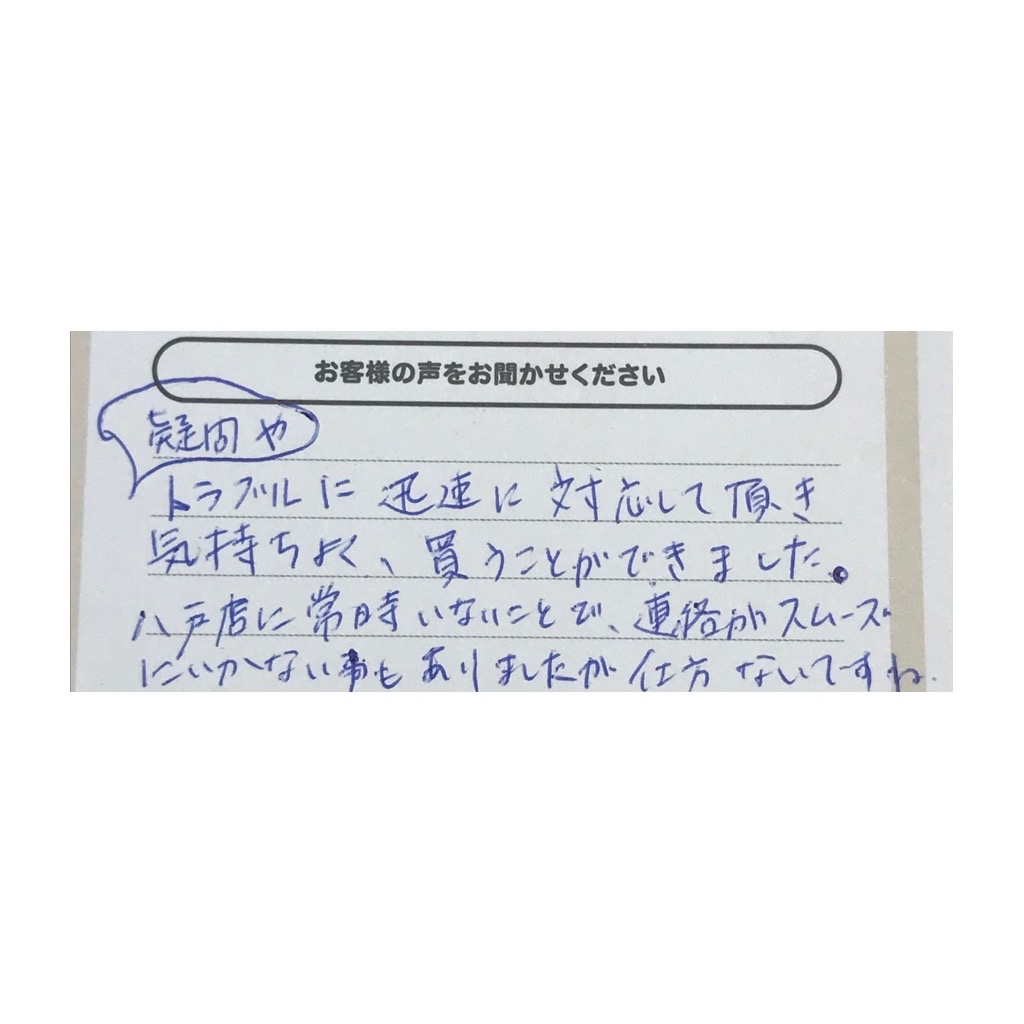 お客様の声をお聞かせください
疑問や
トラブルに迅速に対応して頂き
気持ちよく、買うことができました。
八戸店に常時いないことで、連絡がスムーズ
にいかない事もありましたが仕方ないですね.